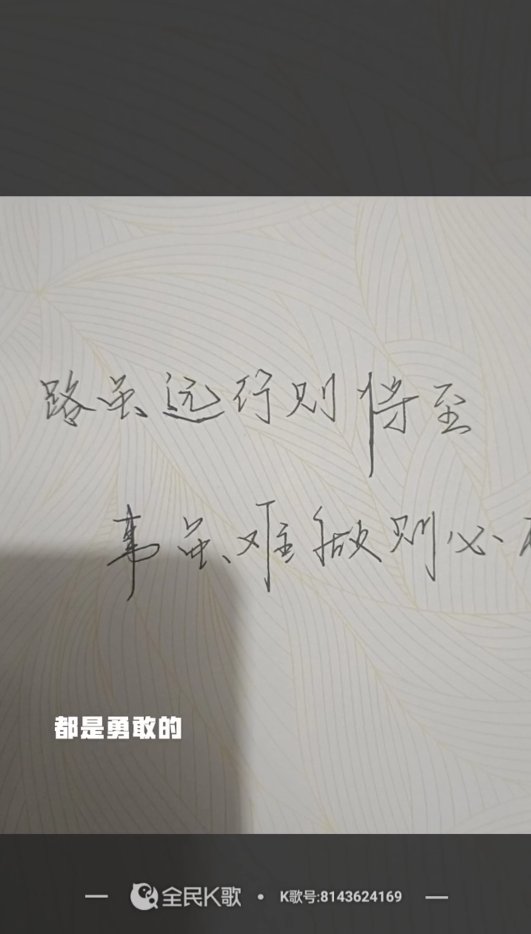 路虽远行则将至
事虽难做则必
都是勇敢的
全民K歌 • K歌号:8143624169